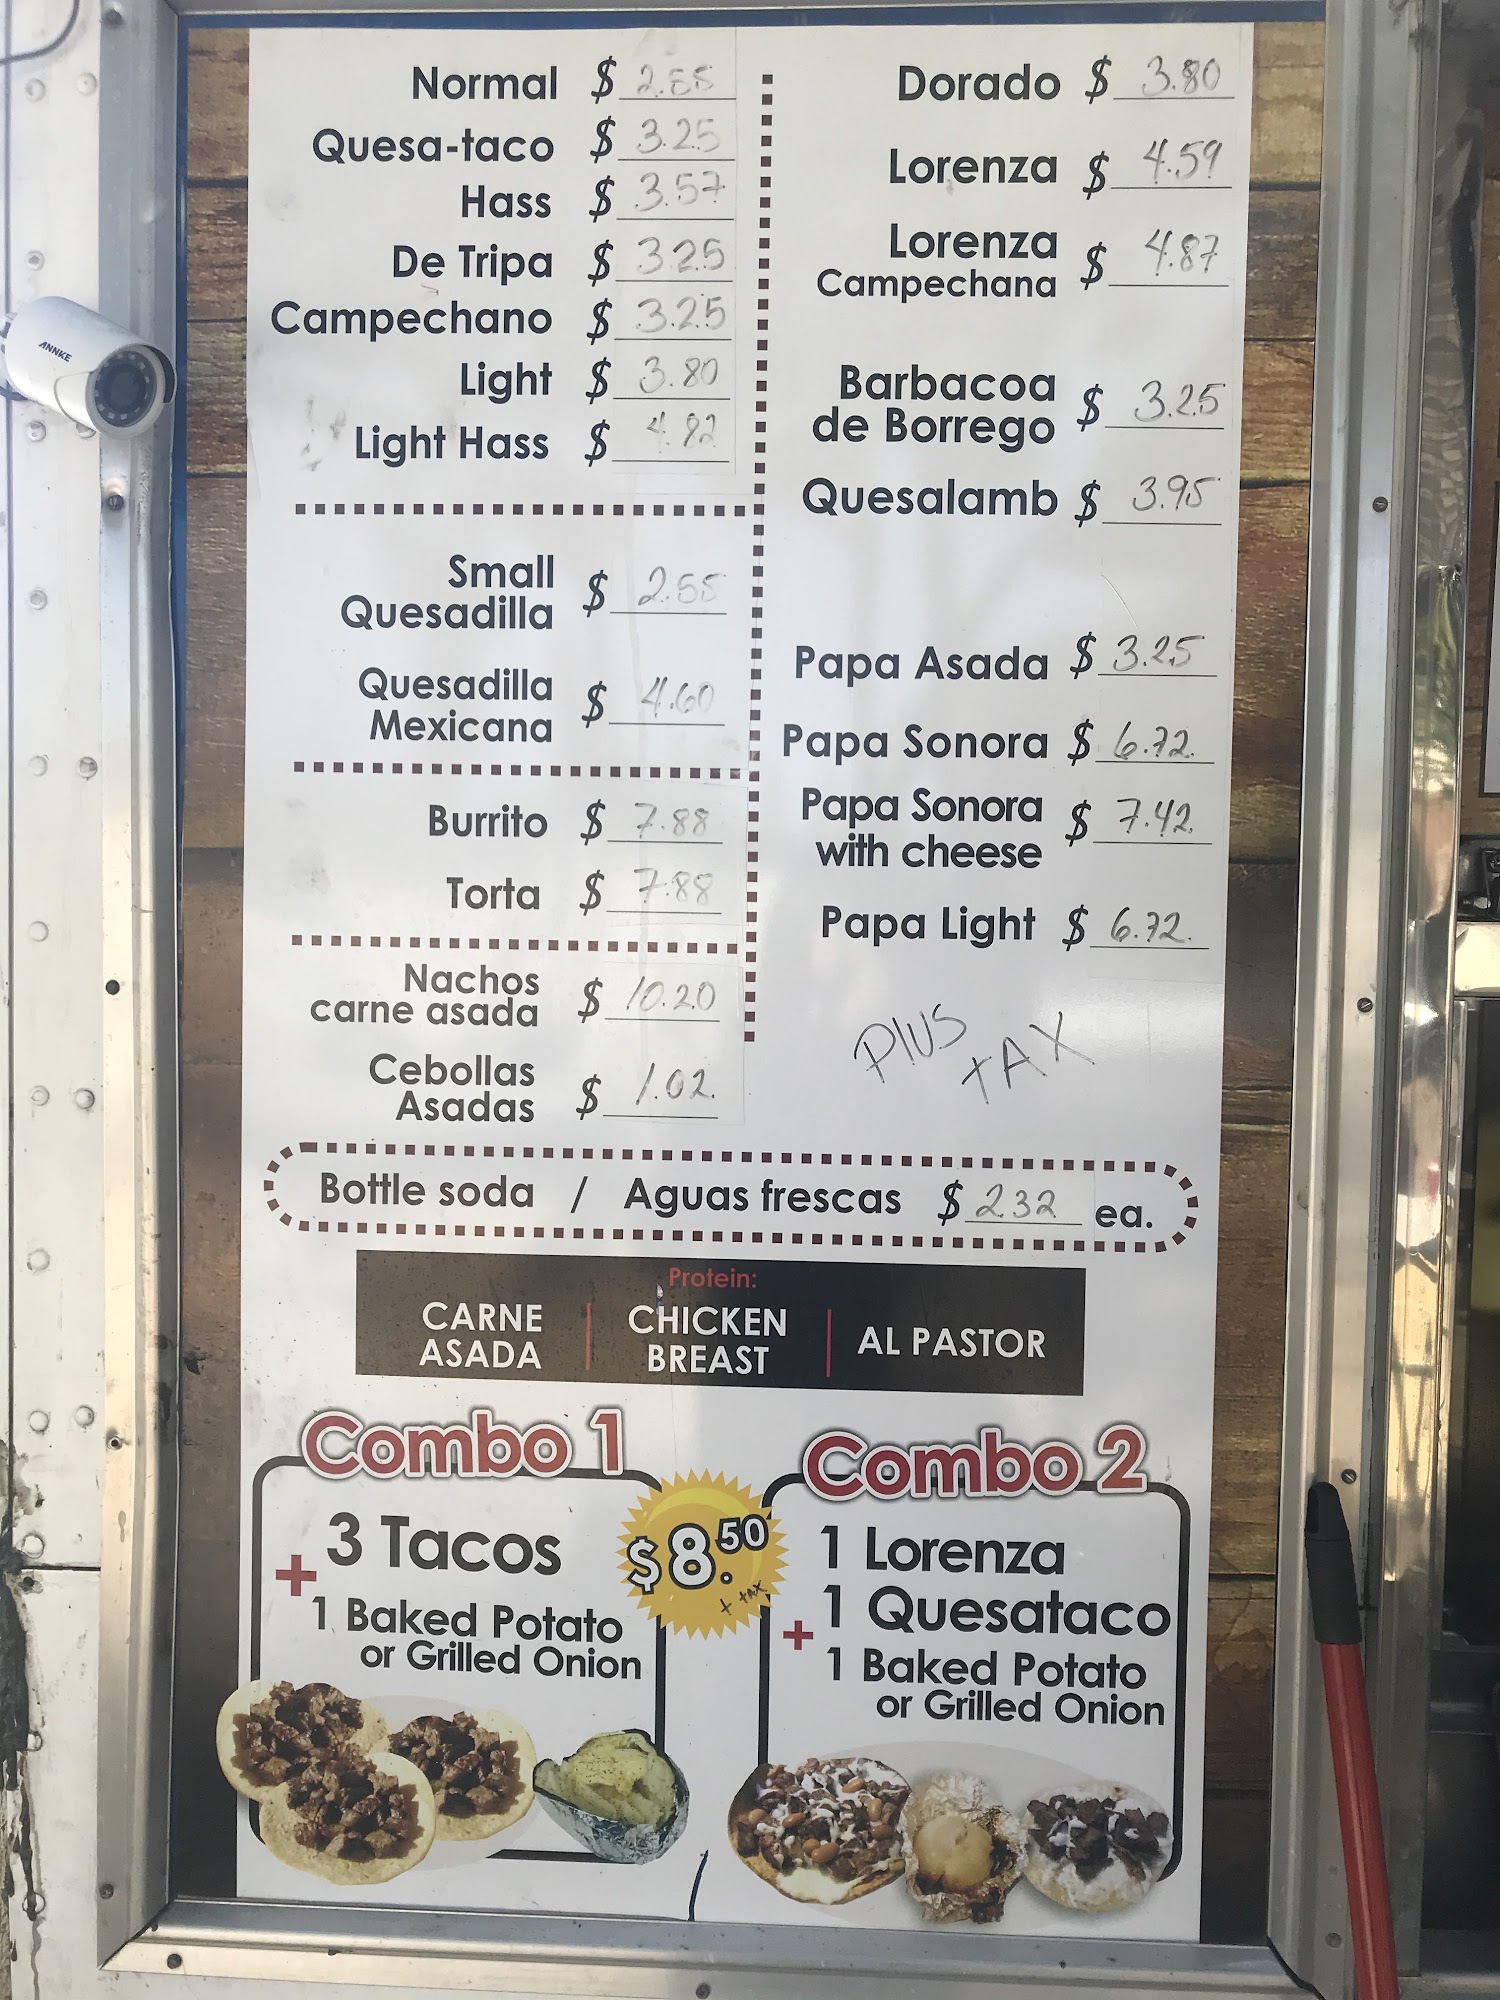 Normal $ 2.55
Quesa-taco $ 3.25
Hass $ 3.57
De Tripa $ 3.25
Campechano $ 3.25
Light $ 3.80
Light Hass $ 4.82
Small
Quesadilla $ 2.55
Quesadilla
Mexicana $ 4.60
Burrito $ 7.88
Torta $ 7.88
Nachos
carne asada $ 10.20
Cebollas
Asadas $ 1.02.
Dorado $ 3.80
Lorenza $ 4.59
Lorenza
Campechana $ 4.87
Barbacoa
de Borrego $ 3.25
Quesalamb $ 3.95
Papa Asada $ 3.25
Papa Sonora $ 6.72.
Papa Sonora
with cheese $ 7.42.
Papa Light $ 6.72.
PlUS
tAX
Bottle soda / Aguas frescas $ 2.32 ea.
Protein:
CARNE
ASADA
CHICKEN
BREAST
AL PASTOR
Combo 1
3 Tacos
+
1 Baked Potato
or Grilled Onion
$8.50
+ tax
Combo 2
1 Lorenza
1 Quesataco
+
1 Baked Potato
or Grilled Onion
ANNKE